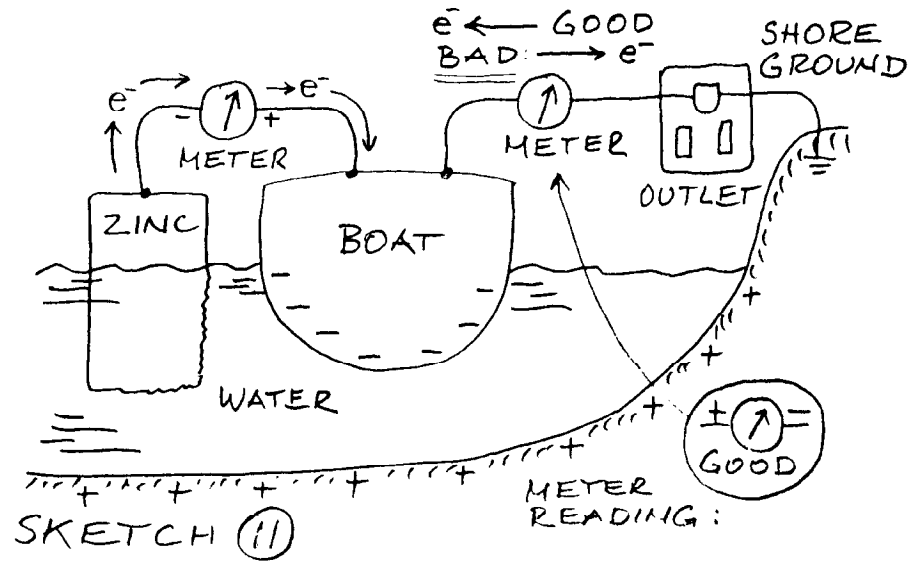 e⁻ ← GOOD
BAD: → e⁻
SHORE
GROUND
e⁻ → - + → e⁻
METER
METER
OUTLET
ZINC
BOAT
WATER
± =
GOOD
METER
READING:
SKETCH 11